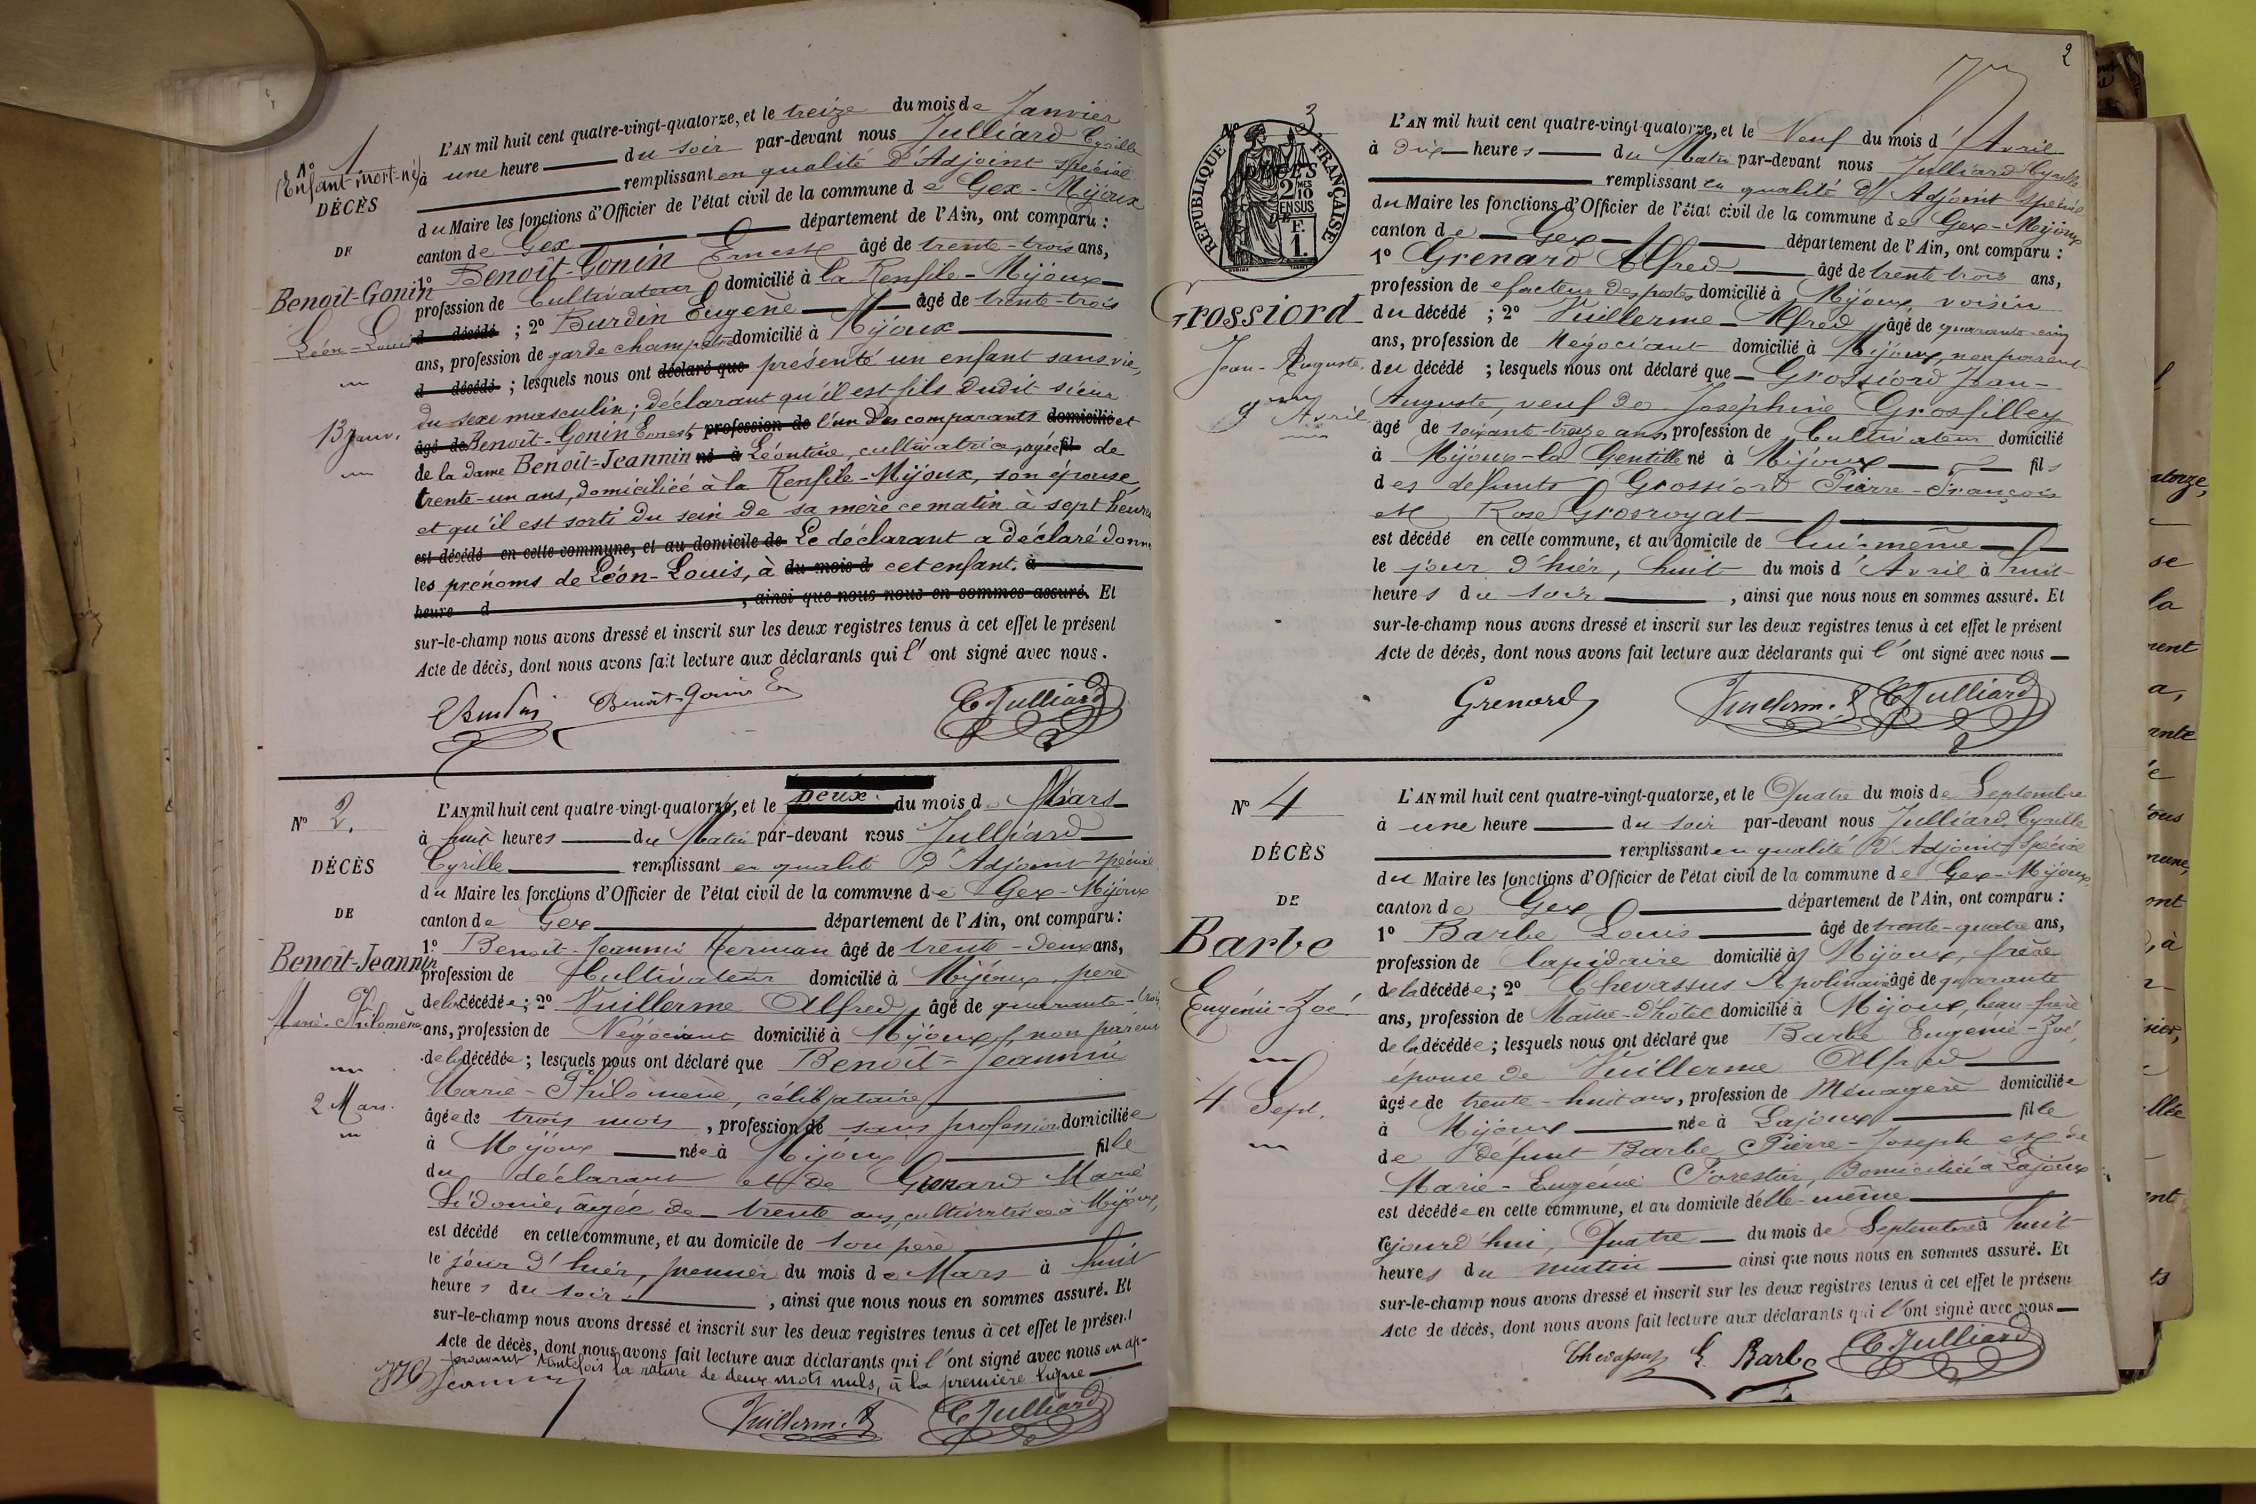 N° 1
(Enfant mort-né)
DÉCÈS
DE
Benoît-Gonin
Léon-Louis
13 Janv.
L'AN mil huit cent quatre-vingt-quatorze, et le treize du mois de Janvier
à une heure du soir par-devant nous Julliard Cyrille
remplissant en qualité d'Adjoint spécial
du Maire les fonctions d'Officier de l'état civil de la commune de Gex-Mijoux
canton de Gex département de l'Ain, ont comparu :
1° Benoît-Gonin Ernest âgé de trente-trois ans,
profession de Cultivateur domicilié à la Renfile-Mijoux
d décédé ; 2° Burdin Eugène âgé de trente-trois
ans, profession de garde champêtre domicilié à Mijoux
d décédé ; lesquels nous ont déclaré que présenté un enfant sans vie,
du sexe masculin ; déclarant qu'il est fils dudit sieur
âgé de Benoît-Gonin Ernest, profession de l'un des comparants domicilié et
de la dame Benoît-Jeannin né à Léontine, cultivatrice, âgée fil de
trente-un ans, domiciliée à la Renfile-Mijoux, son épouse
et qu'il est sorti du sein de sa mère ce matin à sept heures
est décédé en cette commune, et au domicile de Le déclarant a déclaré donner
les prénoms de Léon-Louis, à du mois d cet enfant. à
heure d , ainsi que nous nous en sommes assuré. Et
sur-le-champ nous avons dressé et inscrit sur les deux registres tenus à cet effet le présent
Acte de décès, dont nous avons fait lecture aux déclarants qui l'ont signé avec nous.
EBurdin Benoit-Gonin E C Julliard
N° 2.
DÉCÈS
DE
Benoît-Jeannin
Marie-Philomène
2 Mars.
L'AN mil huit cent quatre-vingt-quatorze, et le Deux du mois de Mars
à huit heures du Matin par-devant nous Julliard
Cyrille remplissant en qualité d'Adjoint spécial
du Maire les fonctions d'Officier de l'état civil de la commune de Gex-Mijoux
canton de Gex département de l'Ain, ont comparu :
1° Benoit-Jeannin Herman âgé de trente-deux ans,
profession de Cultivateur domicilié à Mijoux, père
de la décédée ; 2° Vuillerme Alfred, âgé de quarante-trois
ans, profession de Négociant domicilié à Mijoux, non parent
de la décédée ; lesquels nous ont déclaré que Benoît-Jeannin
Marie-Philomène, célibataire
âgée de trois mois, profession de sans profession domiciliée
à Mijoux née à Mijoux fille
du déclarant et de Grenard Marie
Sidonie, âgée de trente ans, cultivatrice à Mijoux,
est décédé en cette commune, et au domicile de son père
le jour d'hier, premier du mois de Mars à huit
heures du soir , ainsi que nous nous en sommes assuré. Et
sur-le-champ nous avons dressé et inscrit sur les deux registres tenus à cet effet le présent
Acte de décès, dont nous avons fait lecture aux déclarants qui l'ont signé avec nous en ap-
prouvant toutefois la rature de deux mots nuls, à la première ligne
Jeannin
Vuillerm. A C Julliard
2
N° 3
RÉPUBLIQUE FRANÇAISE
DÉCÈS
2 MES 10
EN SUS
DE
F. 1.
Grossiord
Jean-Auguste,
9 Avril
L'AN mil huit cent quatre-vingt-quatorze, et le Neuf du mois d'Avril
à dix heures du Matin par-devant nous Julliard Cyrille
remplissant en qualité d'Adjoint spécial
du Maire les fonctions d'Officier de l'état civil de la commune de Gex-Mijoux
canton de Gex département de l'Ain, ont comparu :
1° Grenard Alfred âgé de trente trois ans,
profession de facteur des postes domicilié à Mijoux voisin
du décédé ; 2° Vuillerme Alfred âgé de quarante-cinq
ans, profession de Négociant domicilié à Mijoux, non parent
du décédé ; lesquels nous ont déclaré que Grossiord Jean-
Auguste, veuf de Joséphine Grosfilley
âgé de soixante-treize ans, profession de Cultivateur domicilié
à Mijoux-la Gentille né à Mijoux fils
des défunts Grossiord Pierre-François
et Rose Grosroyat
est décédé en cette commune, et au domicile de lui-même
le jour d'hier, huit du mois d'Avril à huit
heures du soir , ainsi que nous nous en sommes assuré. Et
sur-le-champ nous avons dressé et inscrit sur les deux registres tenus à cet effet le présent
Acte de décès, dont nous avons fait lecture aux déclarants qui l'ont signé avec nous
Grenard Vuillerm. A C Julliard
N° 4
DÉCÈS
DE
Barbe
Eugénie-Zoé
4 Sept.
L'AN mil huit cent quatre-vingt-quatorze, et le Quatre du mois de Septembre
à une heure du soir par-devant nous Julliard, Cyrille
remplissant en qualité d'Adjoint Spécial
du Maire les fonctions d'Officier de l'état civil de la commune de Gex-Mijoux
canton de Gex département de l'Ain, ont comparu :
1° Barbe Louis âgé de trente-quatre ans,
profession de lapidaire domicilié à Mijoux, frère
de la décédée ; 2° Chevassus Apolinaire âgé de quarante
ans, profession de Maître-d'hôtel domicilié à Mijoux, beau-frère
de la décédée ; lesquels nous ont déclaré que Barbe Eugénie-Zoé,
épouse de Vuillerme Alfred
âgée de trente-huit ans, profession de Ménagère domiciliée
à Mijoux née à Lajoux fille
de défunt Barbe Pierre-Joseph et de
Marie-Eugénie Forestier, Domiciliée à Lajoux
est décédée en cette commune, et au domicile d'elle-même
cejourd'hui, Quatre du mois de Septembre à huit
heures du matin ainsi que nous nous en sommes assuré. Et
sur-le-champ nous avons dressé et inscrit sur les deux registres tenus à cet effet le présent
Acte de décès, dont nous avons fait lecture aux déclarants qui l'ont signé avec nous
Chevassus L. Barbe C Julliard